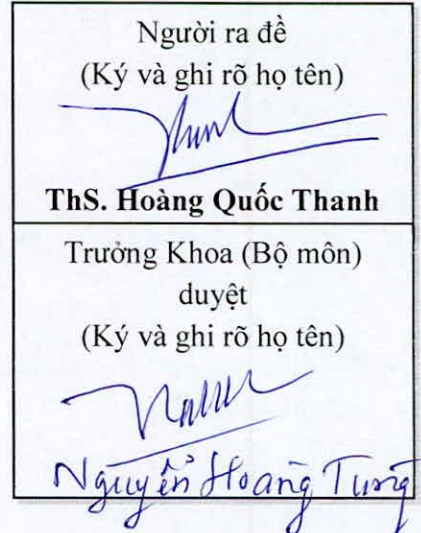 Người ra đề
(Ký và ghi rõ họ tên)
ThS. Hoàng Quốc Thanh
Trưởng Khoa (Bộ môn)
duyệt
(Ký và ghi rõ họ tên)
Nguyễn Hoàng Tùng